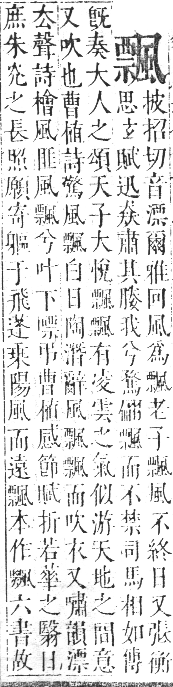 飄
披招切音漂爾雅回風為飄老子飄風不終日又張衡
思玄賦迅猋肅其媵我兮騖翩飄而不禁司馬相如傳
旣奏大人之頌天子大悅飄飄有凌雲之氣似游天地之間意
又吹也曹植詩驚風飄白日陶潛辭風飄飄而吹衣又嘯韻漂
去聲詩檜風匪風飄兮叶下嘌弔曹植感節賦折若華之翳日
庶朱光之長照願寄軀于飛蓬乗陽風而遠飄本作飄六書故